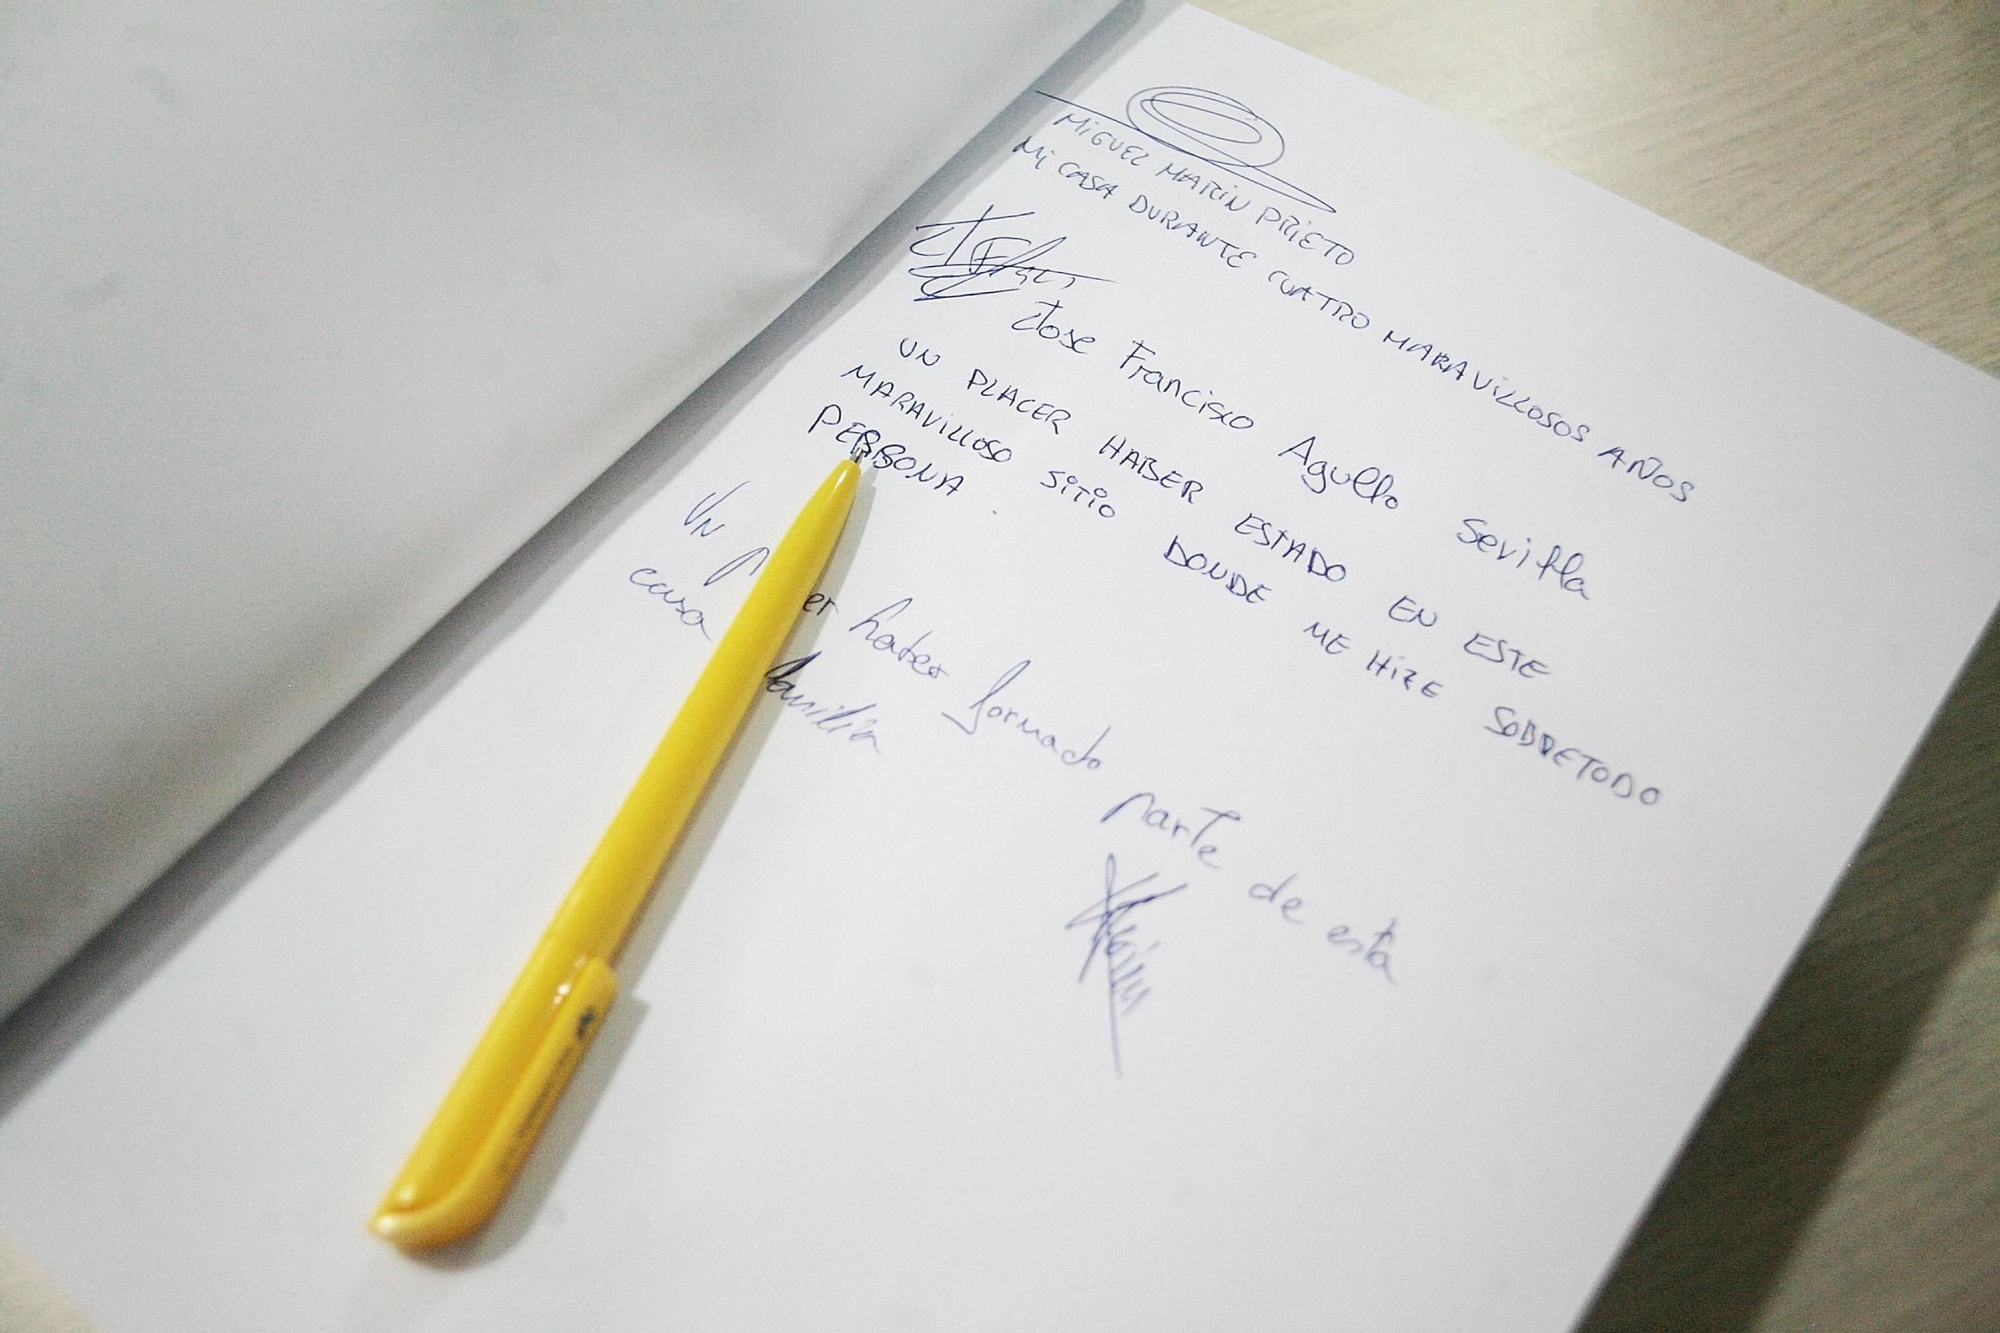 MIGUEL MARÍN PRIETO
MI CASA DURANTE CUATRO MARAVILLOSOS AÑOS
Jose Francisco Agullo Sevilla
UN PLACER HABER ESTADO EN ESTE
MARAVILLOSO SITIO DONDE ME HIZE SOBRETODO
PERSONA.
Un p er haber formado parte de esta
casa familia